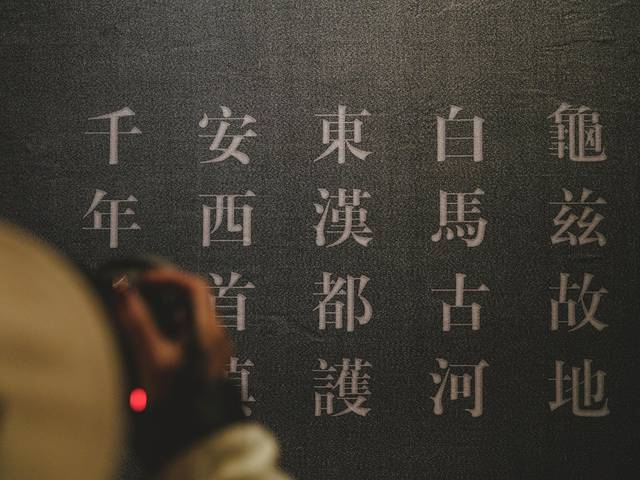 龜兹故地
白馬古河
東漢都護
安西首
千年